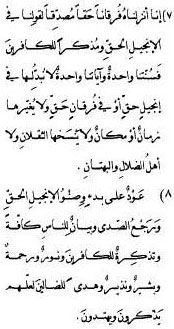 ٧) إنا أنزلناهُ فرقاناً حقاً مُصدِّقاً لقولنا في
الإنجيل الحقِّ ومُذكِّراً للكافرين
فسُنَّتنا واحدةٌ وآياتنا واحدةٌ لا يُبدِّلها في
إنجيلٍ حقٍّ أوْ في فُرقانٍ حقٍّ ولا يُغيِّرها
زمانٌ أوْ مكانٌ ولا ينسخها الثقلان ولا
أهلُ الضلال والبهتان.
٨) عَوْدٌ على بدءٍ وصِنْوُ الإنجيل الحقِّ
وتَرجَعُ الصَّدى وبيانٌ للناس كافَّةً
وتذكرةٌ للكافرين ونورٌ ورحمةٌ
وبشيرٌ ونذيرٌ وهدىً للضالين لعلَّهم
يذَّكَّرون ويهتدون.